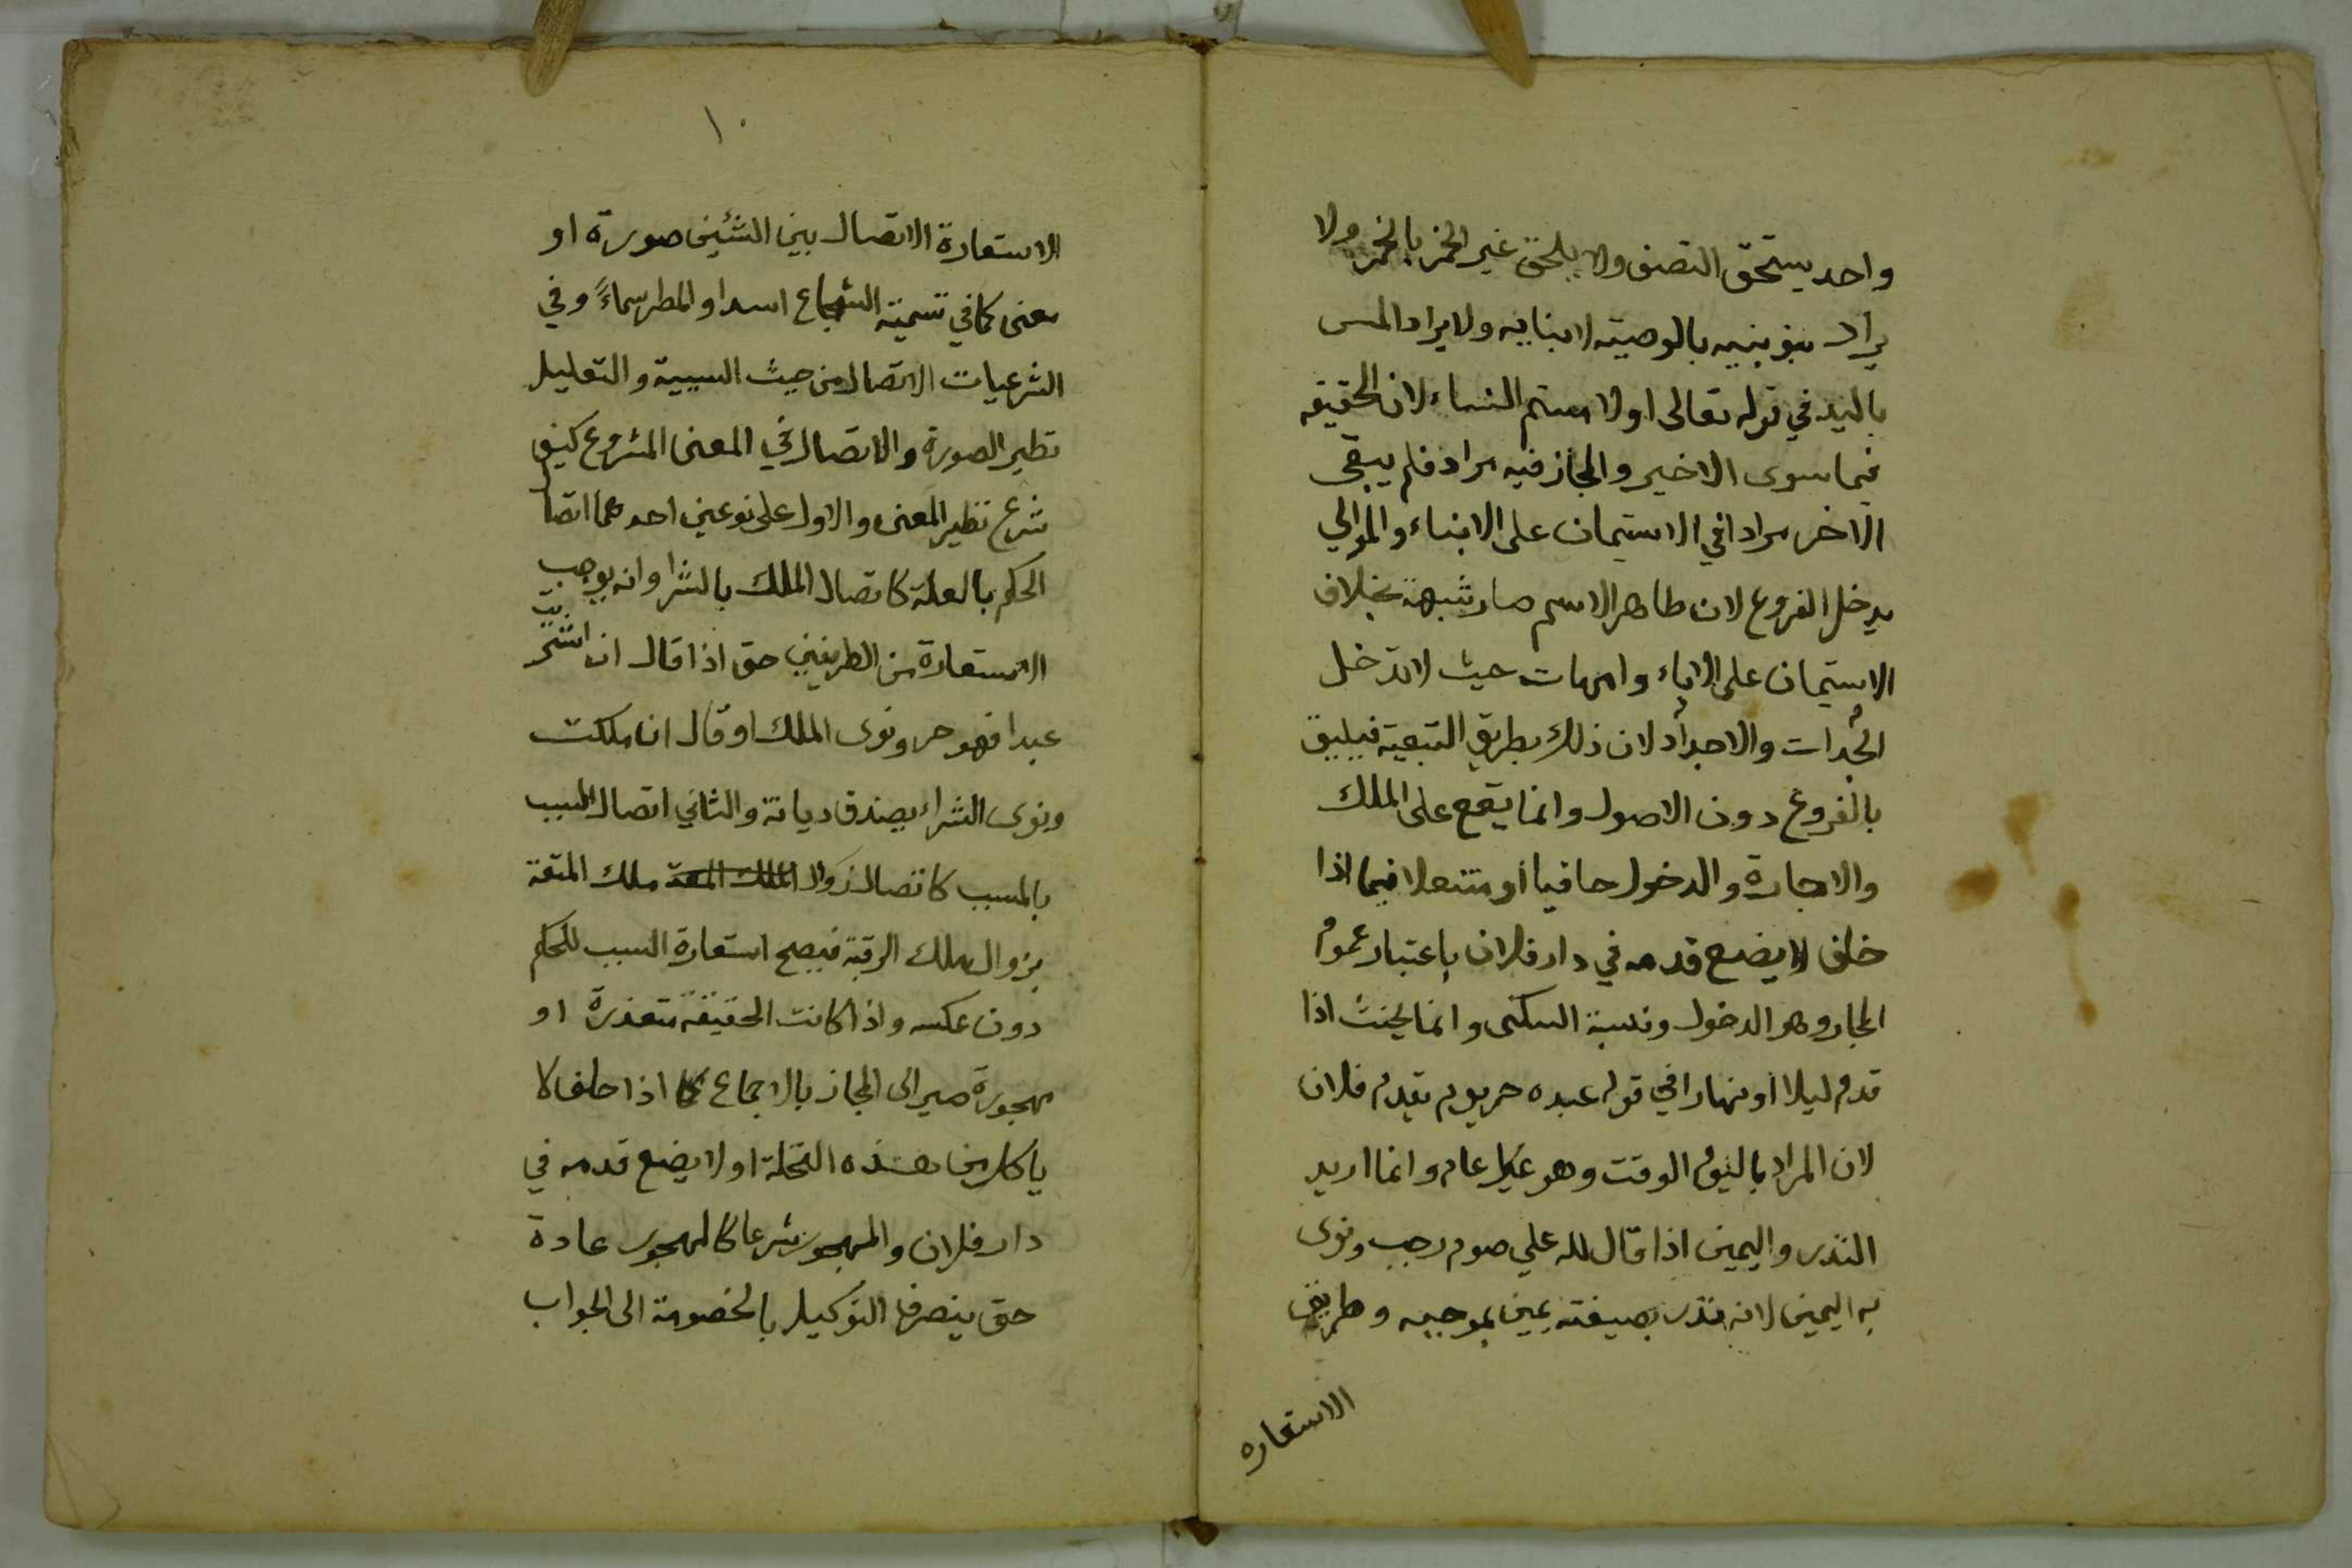 واحد يستحق النصف ولا يلحق غير الخمر بالخمر ولا
يراد بنو بنيه بالوصية لابنايه ولا يراد المس
باليد في قوله تعالى او لا مستم النساء لان الحقيقة
فيما سوى الاخير والمجاز فيه مراد فلم يبقى
الاخر مرادا في الاستيمان على الابناء والموالي
يدخل الفروع لان ظاهر الاسم صار شبهة بخلاف
الاستيمان على الاباء وامهات حيث لا تدخل
الجدات والاجداد لان ذلك بطريق التبعية فيليق
بالفروع دون الاصول وانما يقع على الملك
والاجارة والدخول حافيا او متنعلا فيما اذا
حلف لا يضع قدمه في دار فلان باعتبار عموم
المجاز وهو الدخول ونسبة السكنى وانما يحنث اذا
قدم ليلا او نهارا في قوله عبده حر يوم يقدم فلان
لان المراد باليوم الوقت وهو عام وانما اريد
النذر واليمين اذا قال لله علي صوم رجب ونوى
به اليمين لانه نذر بصيغته يمين بموجبه وطريق
الاستعاره
١٠
الاستعارة الاتصال بين الشئين صورة او
معنى كما في تسمية الشجاع اسدا والمطر سماءً وفي
الشرعيات الاتصال من حيث السببية والتعليل
نظير الصورة والاتصال في المعنى المشروع كيف
شرع نظير المعنى والاول على نوعين احدهما اتصا
الحكم بالعلة كاتصال الملك بالشرا وانه يوجب
الاستعارة من الطرفين حتى اذا قال ان اشتريت
عبدا فهو حر ونوى الملك او قال ان ملكت
ونوى الشراء يصدق ديانة والثاني اتصال السبب
بالمسبب كاتصال زوال الملك المتعة ملك المتعة
بزوال ملك الرقبة فيصح استعارة السبب للحكم
دون عكسه واذا كانت الحقيقة متعذرة او
مهجورة صير الى المجاز بالاجماع كما اذا حلف لا
ياكل من هذه النخلة او لا يضع قدمه في
دار فلان والمهجور شرعا كالمهجور عادة
حتى ينصرف التوكيل بالخصومة الى الجواب